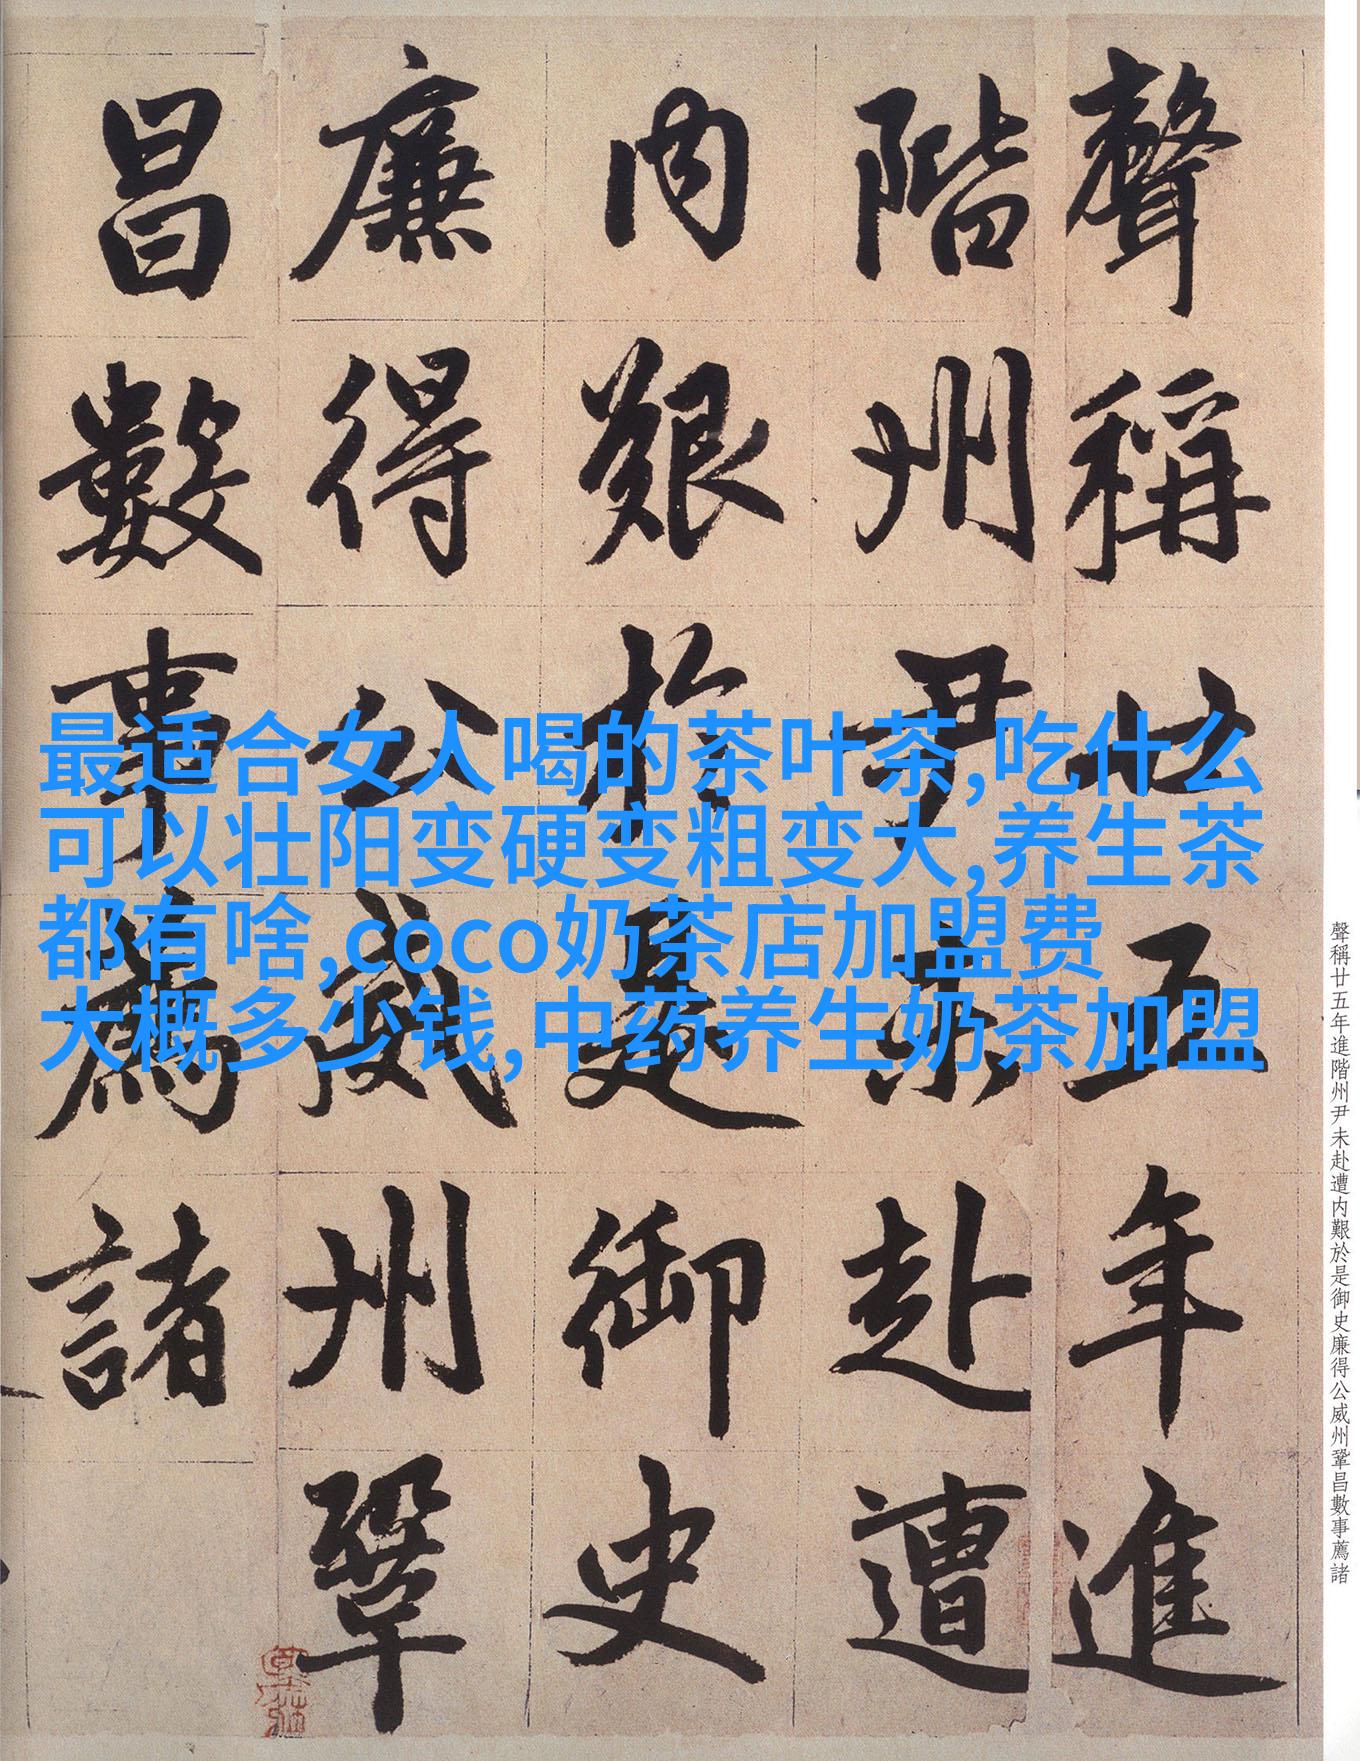 聲稱廿五年進
階州尹未赴遭
内艱於是御史
廉得公威州鞏
昌數事薦諸
最适合女人喝的茶叶茶,吃什么
可以壮阳变硬变粗变大,养生茶
都有啥,coco奶茶店加盟费
大概多少钱,中药养生奶茶加盟
聲稱廿五年進階州尹未赴遭内艱於是御史廉得公威州鞏昌數事薦諸